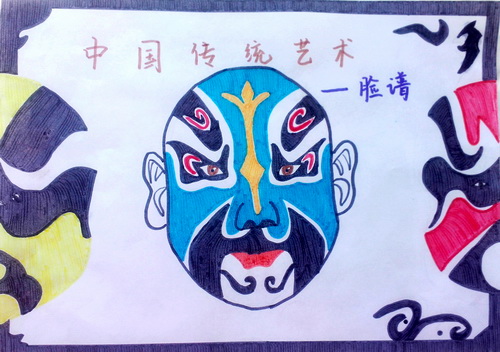 中国传统艺术
—脸谱